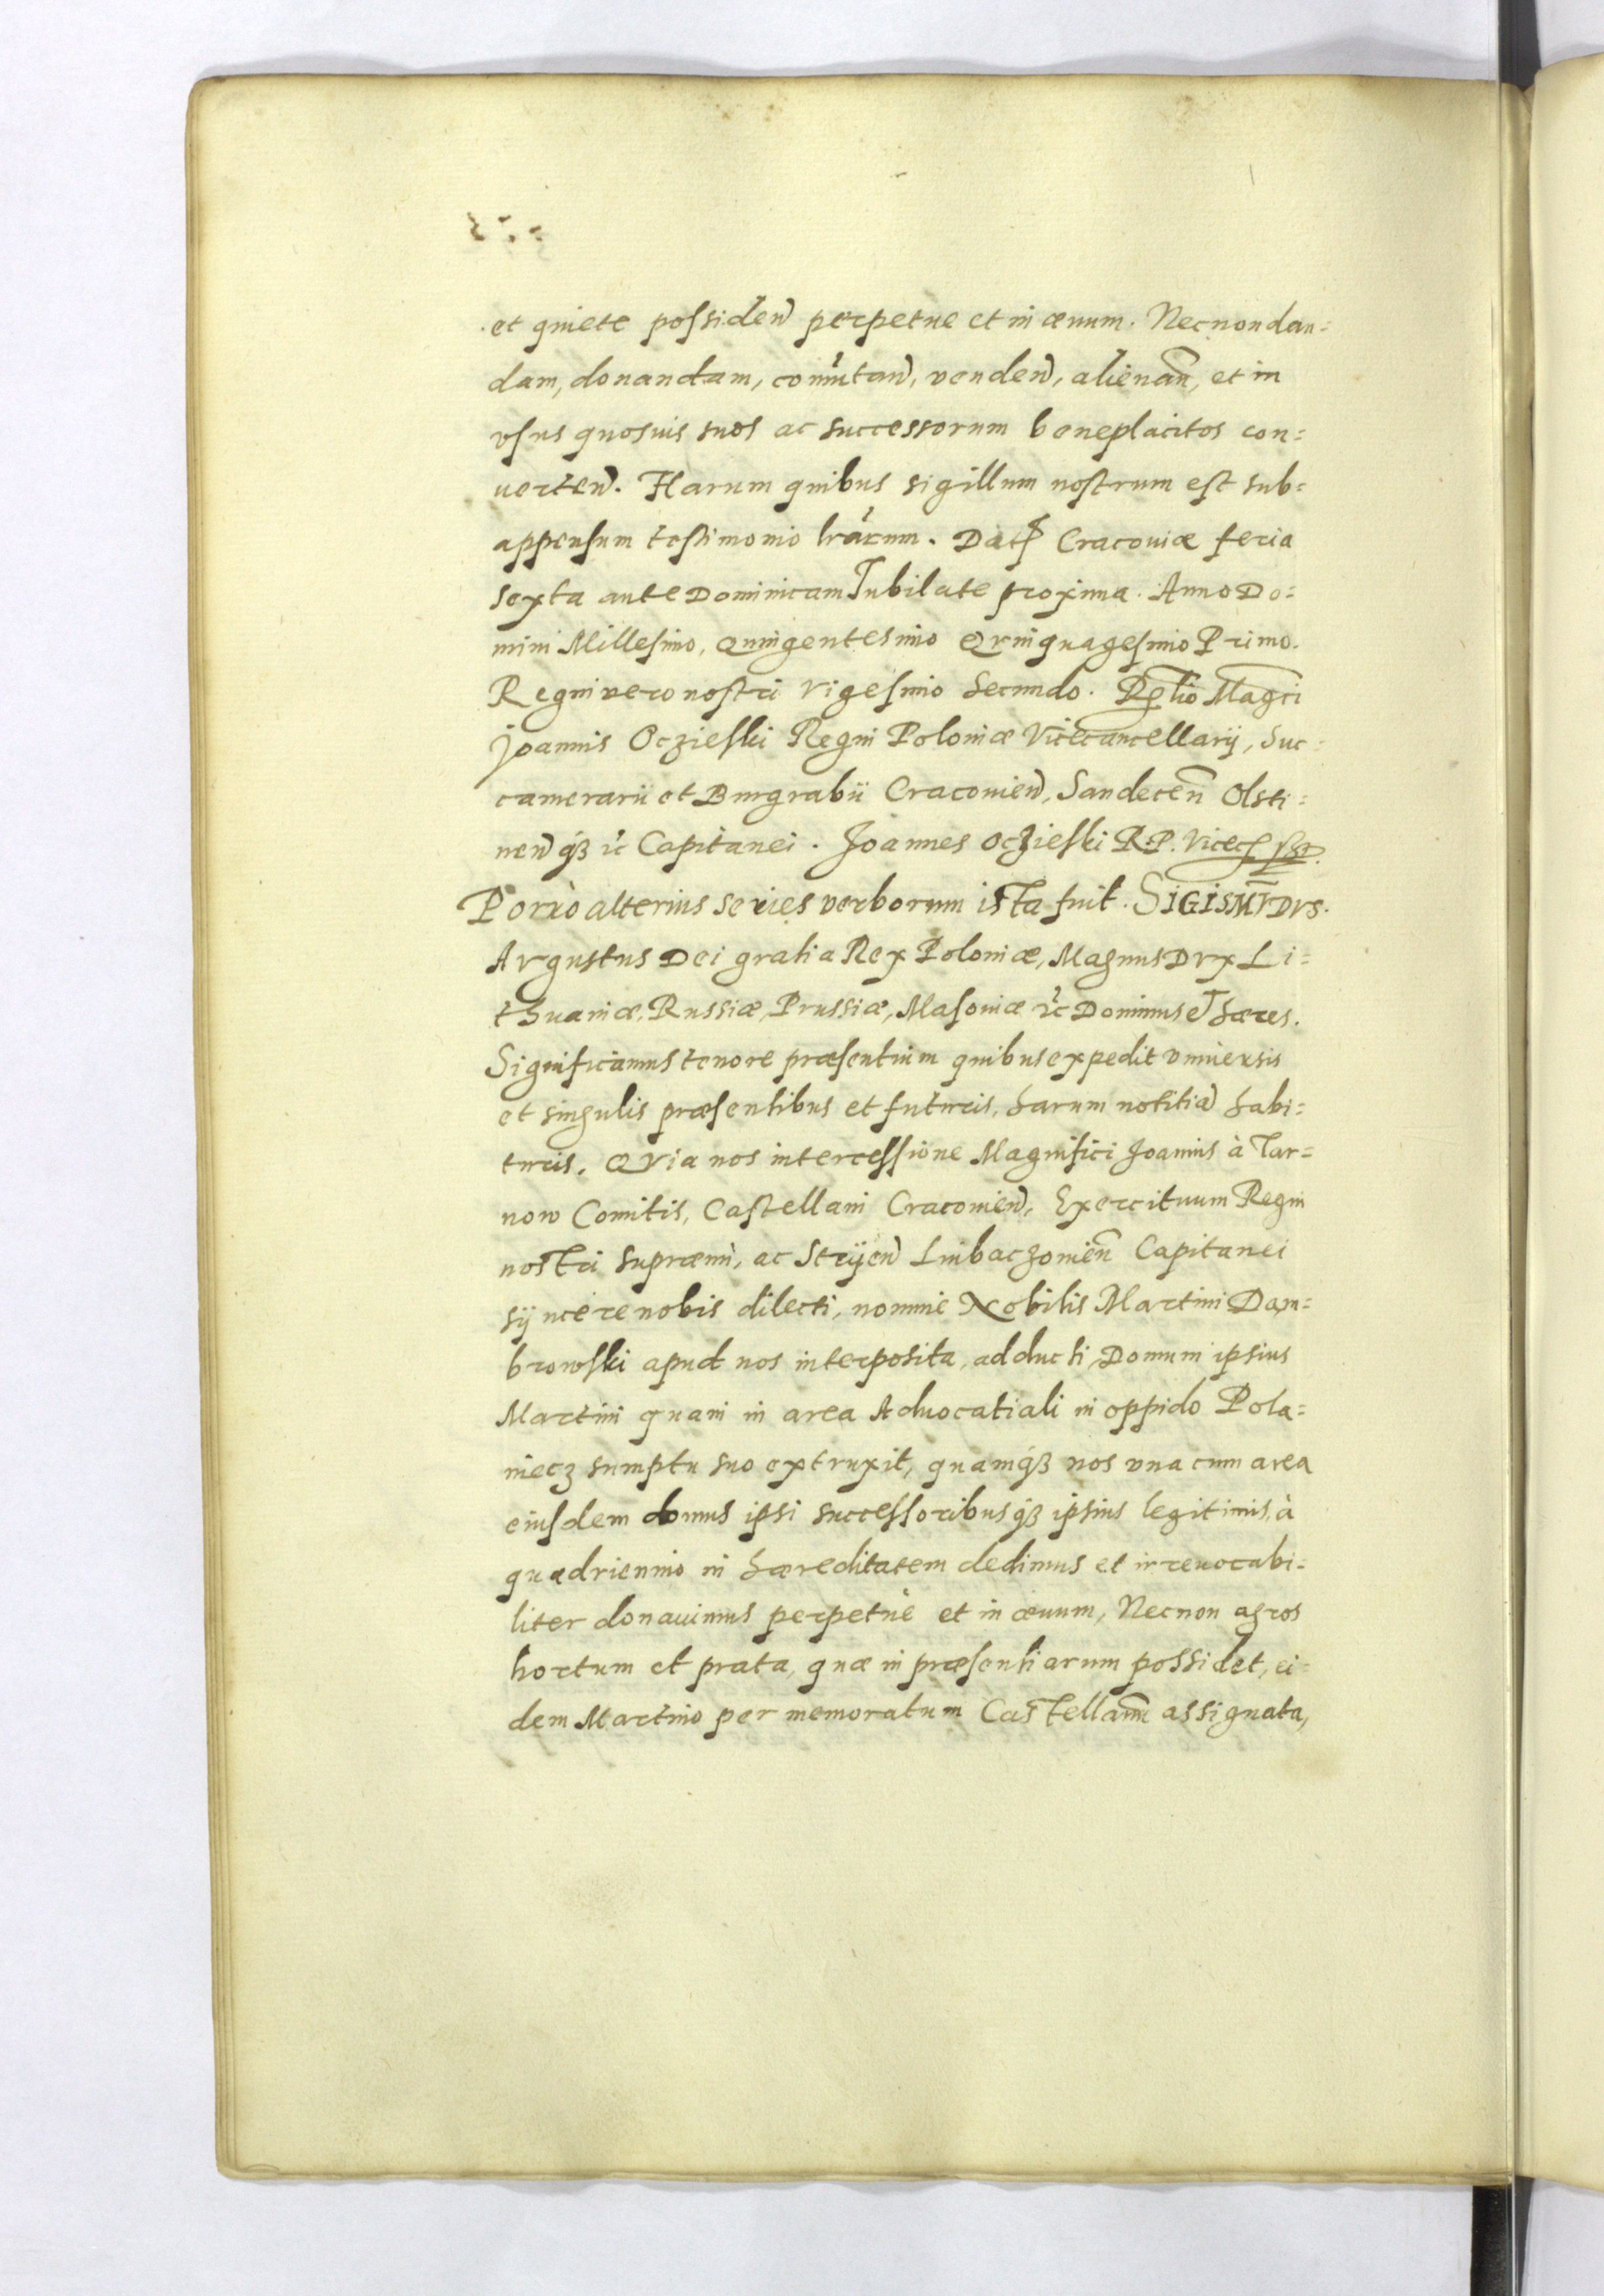 et quiete possideñ perpetue et in æuum. Necnon dan=
dam, donandam, comutañ, vendeñ, alienañ, et in
vsus quosuis suos ac successorum beneplacitos con=
uerteñ. Harum quibus sigillum nostrum est sub=
appensum testimonio lrārum. Dat Cracouiæ feria
sexta ante Dominicam Jubilate proxima. Anno Do=
mini Millesimo, Quingentesimo Qvinquagesimo Primo.
Regni vero nostri Vigesimo Secundo. Rlio Magci
Joannis Oczieski Regni Poloniæ Vicecancellarij, Suc=
camerarii et Burgrabii Cracouieñ, Sandeceñ Olsti=
neñ qȝ ꝛc Capitanei. Joannes Oczieski R.P. Vicec sst.
Porrò alterius series verborum ista fuit. SIGISMVDVS.
Avgustus Dei gratia Rex Poloniæ, Magnus Dvx Li=
thuaniæ, Russiæ, Prussiæ, Masouiæ ꝛc Dominus et hæres.
Significamus tenore præsentium quibus expedit vniuersis
et singulis præsentibus et futuris, harum notitiā habi=
turis. Qvia nos intercessione Magnifici Joannis à Tar=
now Comitis, Castellani Cracouieñ, Exercituum Regni
nostri supræmi, ac Stryeñ Lubaczouieñ Capitanei
syncere nobis dilecti, nomine Nobilis Martini Dam=
browski apud nos interposita, adducti, Domum ipsius
Martini quam in area Aduocatiali in oppido Pola=
niecz sumptu suo extruxit, quamqȝ nos vna cum area
eiusdem domus ipsi successoribusqȝ ipsius legitimis, à
quadriennio in hæreditatem dedimus et irreuocabi=
liter donauimus perpetuè et in æuum, Necnon agros
hortum et prata, quæ in præsentiarum possidet, ei=
dem Martino per memoratum Castellanū assignata,